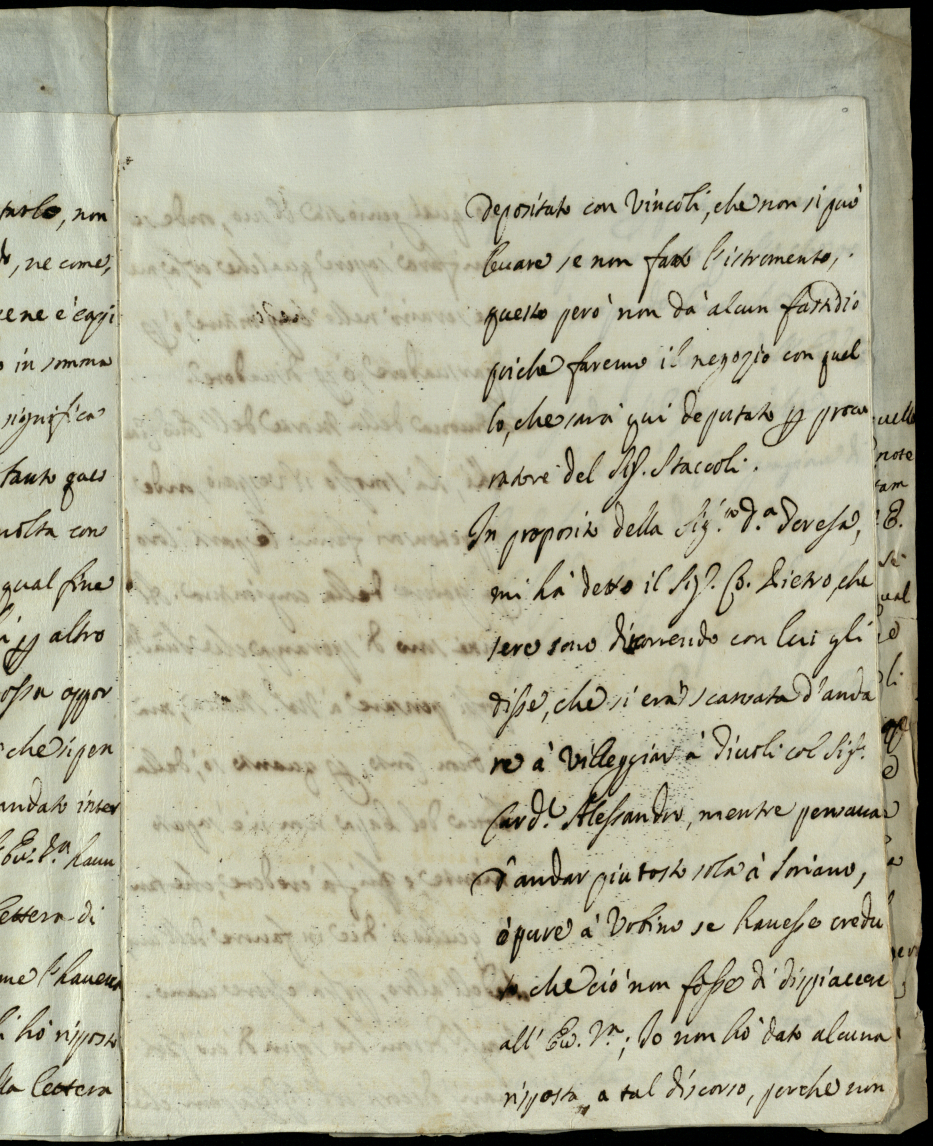 tarlo, non
, ne come,
ene è cagi
o in somma
significa
tanto ques
molta con
qual fine
i per altro
ossa oppor
che si pen
andato inter
Em. V.ra hau
lettera di
me l'haueua
li hò risposto
la lettera
depositato con Vincoli, che non si può
leuare se non fatto l'istromento,
questo però non dà alcun fastidio
poiche faremo il negozio con quel
lo, che sarà qui deputato per procu
ratore del Sig.r Staccoli.
In proposito della Sig.ra D.a Teresa,
mi hà detto il Sig.r Co. Pietro, che
sere sono discorrendo con lui gli
disse, che si era scansata d'anda
re à Villeggiar à Tiuoli col Sig.r
Card.l Alessandro, mentre pensaua
d'andar piu tosto sola à Soriano,
ò pure à Vrbino se hauesse credu
to, che ciò non fosse di dispiacere
all' Em. V.ra; Io non hò dato alcuna
risposta a tal discorso, perche non
uelle
note
tam
E.
se
ual
e
li